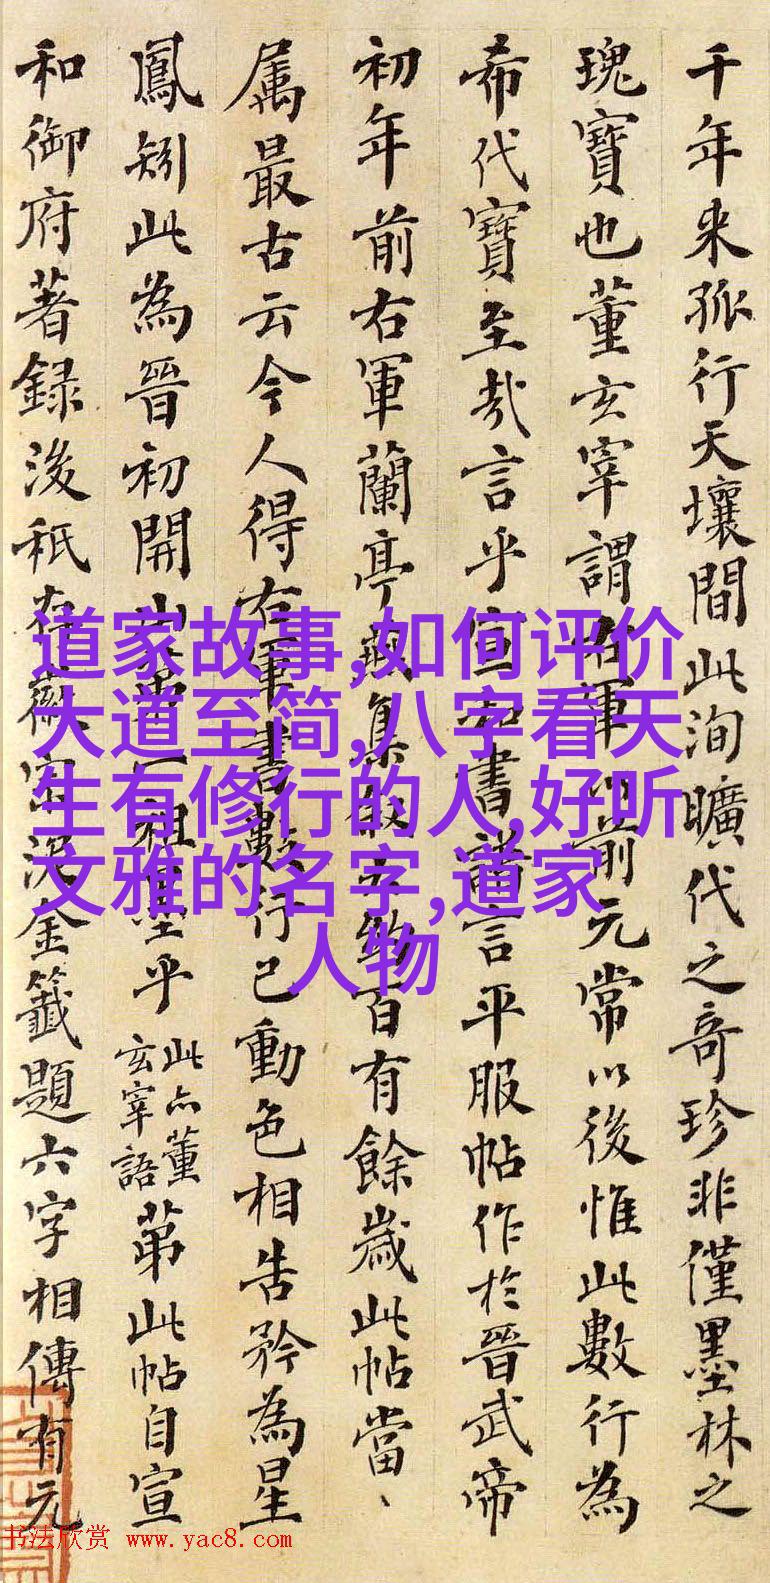 千年来孤行天壤間此洵曠代之奇珍非僅墨林之
瑰寶也董玄宰謂右軍以前元常以後惟此數行為
希代寶至哉言乎宣和書譜言平服帖作於晉武帝
初年前右軍蘭亭
百有餘歲此帖當、
属最古云今人得右軍書數行已動色相告矜為星
鳳矧此為晉初開山
祖
乎
此亦董
玄宰語
苐此帖自宣
和御府著録後秖存徽宗泥金籖題六字相傳有元
道家故事,如何评价
大道至简,八字看天
生有修行的人,好听
文雅的名字,道家
人物
书法欣赏 www.yac8.com